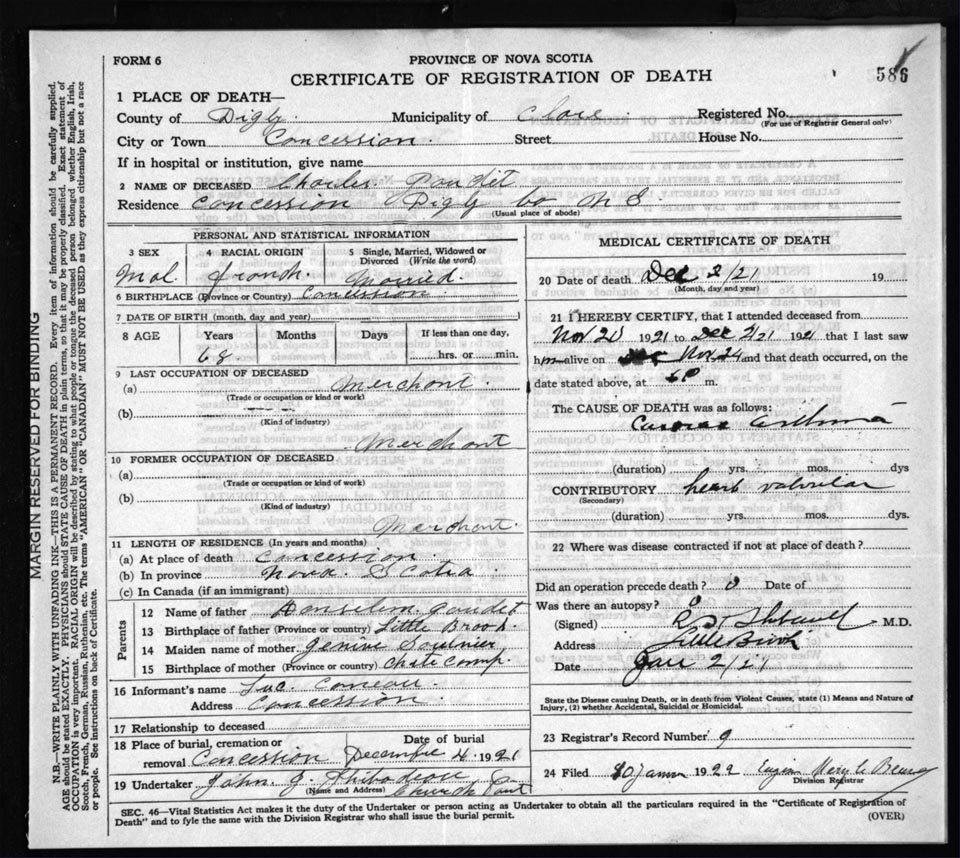 FORM 6
PROVINCE OF NOVA SCOTIA
CERTIFICATE OF REGISTRATION OF DEATH
586
1 PLACE OF DEATH—
County of Digby Municipality of Clare Registered No.
(For use of Registrar General only)
City or Town Concession Street House No.
If in hospital or institution, give name
2 NAME OF DECEASED Charles Gaudet
Residence Concession Digby Co N S
(Usual place of abode)
PERSONAL AND STATISTICAL INFORMATION
3 SEX 4 RACIAL ORIGIN 5 Single, Married, Widowed or Divorced (Write the word)
Mal. french. Married.
6 BIRTHPLACE (Province or Country) Concession
7 DATE OF BIRTH (month, day and year)
8 AGE Years Months Days If less than one day,
68 hrs. or min.
9 LAST OCCUPATION OF DECEASED
(a) Merchant.
(Trade or occupation or kind or work)
(b)
(Kind of industry)
Merchant
10 FORMER OCCUPATION OF DECEASED
(a)
(Trade or occupation or kind of work)
(b)
(Kind of industry)
Merchant.
11 LENGTH OF RESIDENCE (In years and months)
(a) At place of death Concession.
(b) In province Nova Scotia
(c) In Canada (if an immigrant)
Parents
12 Name of father Anselem gaudet
13 Birthplace of father (Province or country) Little Brook.
14 Maiden name of mother Saulnier
15 Birthplace of mother (Province or country)
16 Informant's name Luc. Comeau.
Address Concession.
17 Relationship to deceased
18 Place of burial, cremation or removal Concession Date of burial Decembre 4 1921
19 Undertaker John. J. Thibodeau Church Point
(Name and Address)
MEDICAL CERTIFICATE OF DEATH
20 Date of death Dec 2/21 19
(Month, day and year)
21 I HEREBY CERTIFY, that I attended deceased from
Nov 20 1921 to Dec 2/21 1921 that I last saw
him alive on Nov 24 and that death occurred, on the
date stated above, at 6 P m.
The CAUSE OF DEATH was as follows:
Cardiac asthma
(duration) yrs. mos. dys
CONTRIBUTORY heart valvular
(Secondary)
(duration) yrs. mos. dys.
22 Where was disease contracted if not at place of death?
Did an operation precede death? 0 Date of
Was there an autopsy? 0
(Signed) M.D.
Address Little Brook
Date Jan 2/21
State the Disease causing Death, or in death from Violent Causes, state (1) Means and Nature of
Injury, (2) whether Accidental, Suicidal or Homicidal.
23 Registrar's Record Number 9
24 Filed 10 janvier 1922
Division Registrar
SEC. 46—Vital Statistics Act makes it the duty of the Undertaker or person acting as Undertaker to obtain all the particulars required in the "Certificate of Registration of
Death" and to fyle the same with the Division Registrar who shall issue the burial permit.
(OVER)
MARGIN RESERVED FOR BINDING
N.B.—WRITE PLAINLY WITH UNFADING INK—THIS IS A PERMANENT RECORD. Every item of information should be carefully supplied.
AGE should be stated EXACTLY. PHYSICIANS should STATE CAUSE OF DEATH in plain terms, so that it may be properly classified. Exact statement of
OCCUPATION is very important. RACIAL ORIGIN will be described by stating to what people or tongue the deceased person belonged whether English, Irish,
Scotch, French, German, Russian, Ruthenian, etc. The terms "AMERICAN" OR "CANADIAN" MUST NOT BE USED as they express citizenship but not a race
or people. See instructions on back of Certificate.